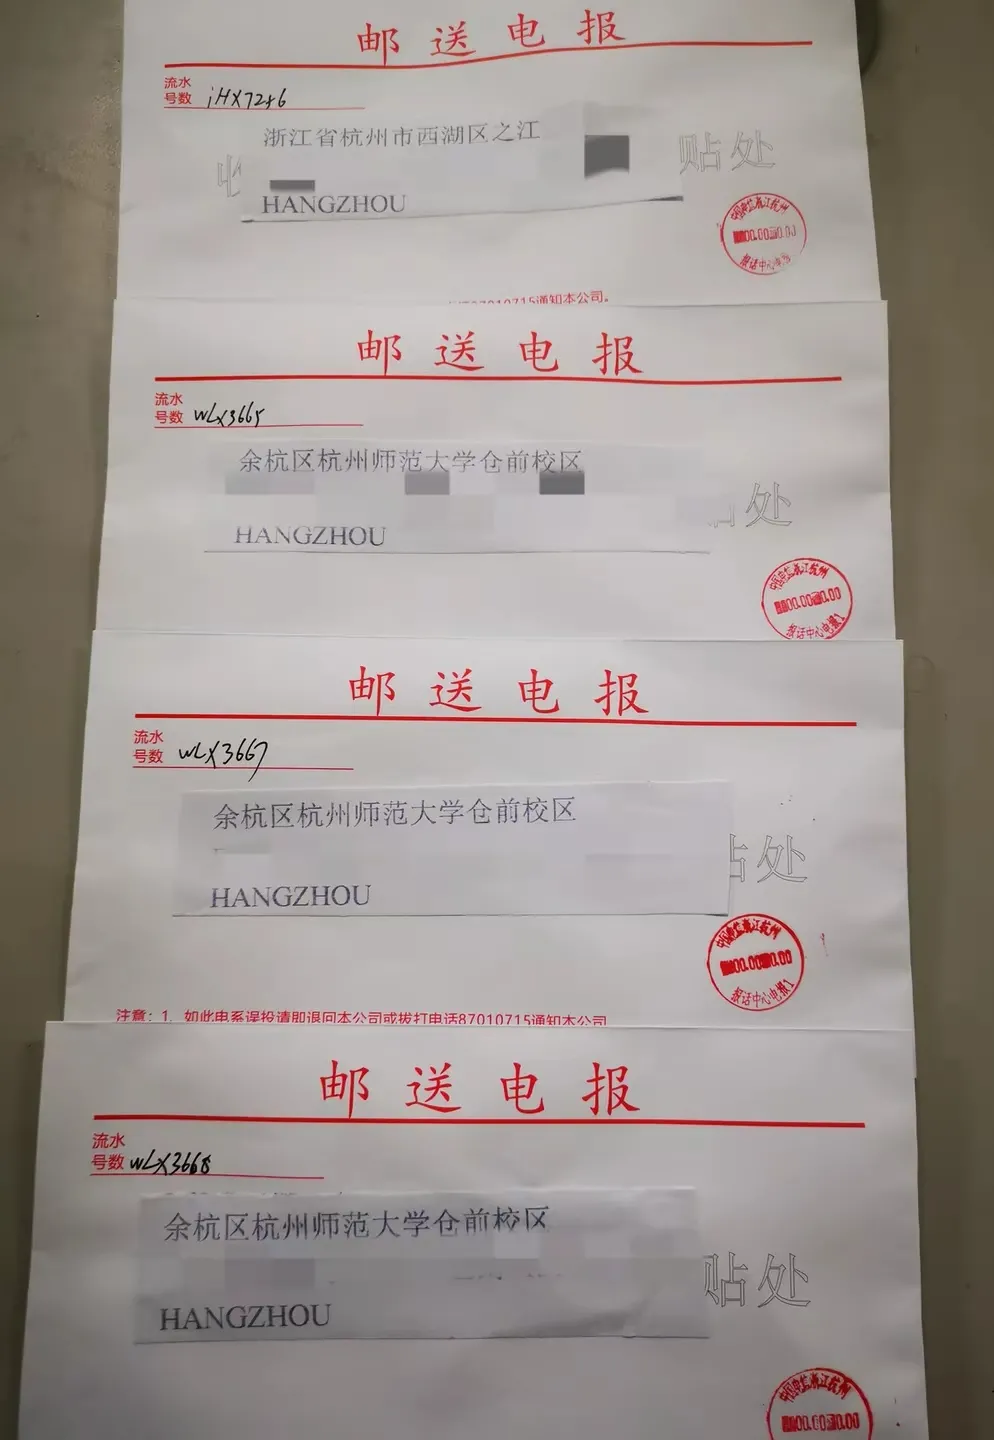 邮送电报
流水
号数 iHX7286
浙江省杭州市西湖区之江
贴处
HANGZHOU
中国电信浙江杭州
报话中心电报
87010715通知本公司。
邮送电报
流水
号数 WLX3665
余杭区杭州师范大学仓前校区
处
HANGZHOU
中国电信浙江杭州
报话中心电报1
邮送电报
流水
号数 WLX3667
余杭区杭州师范大学仓前校区
贴处
HANGZHOU
中国电信浙江杭州
报话中心电报1
注意：1、如此电系误投请即退回本公司或拔打电话87010715通知本公司
邮送电报
流水
号数 WLX3668
余杭区杭州师范大学仓前校区
贴处
HANGZHOU
中国电信浙江杭州